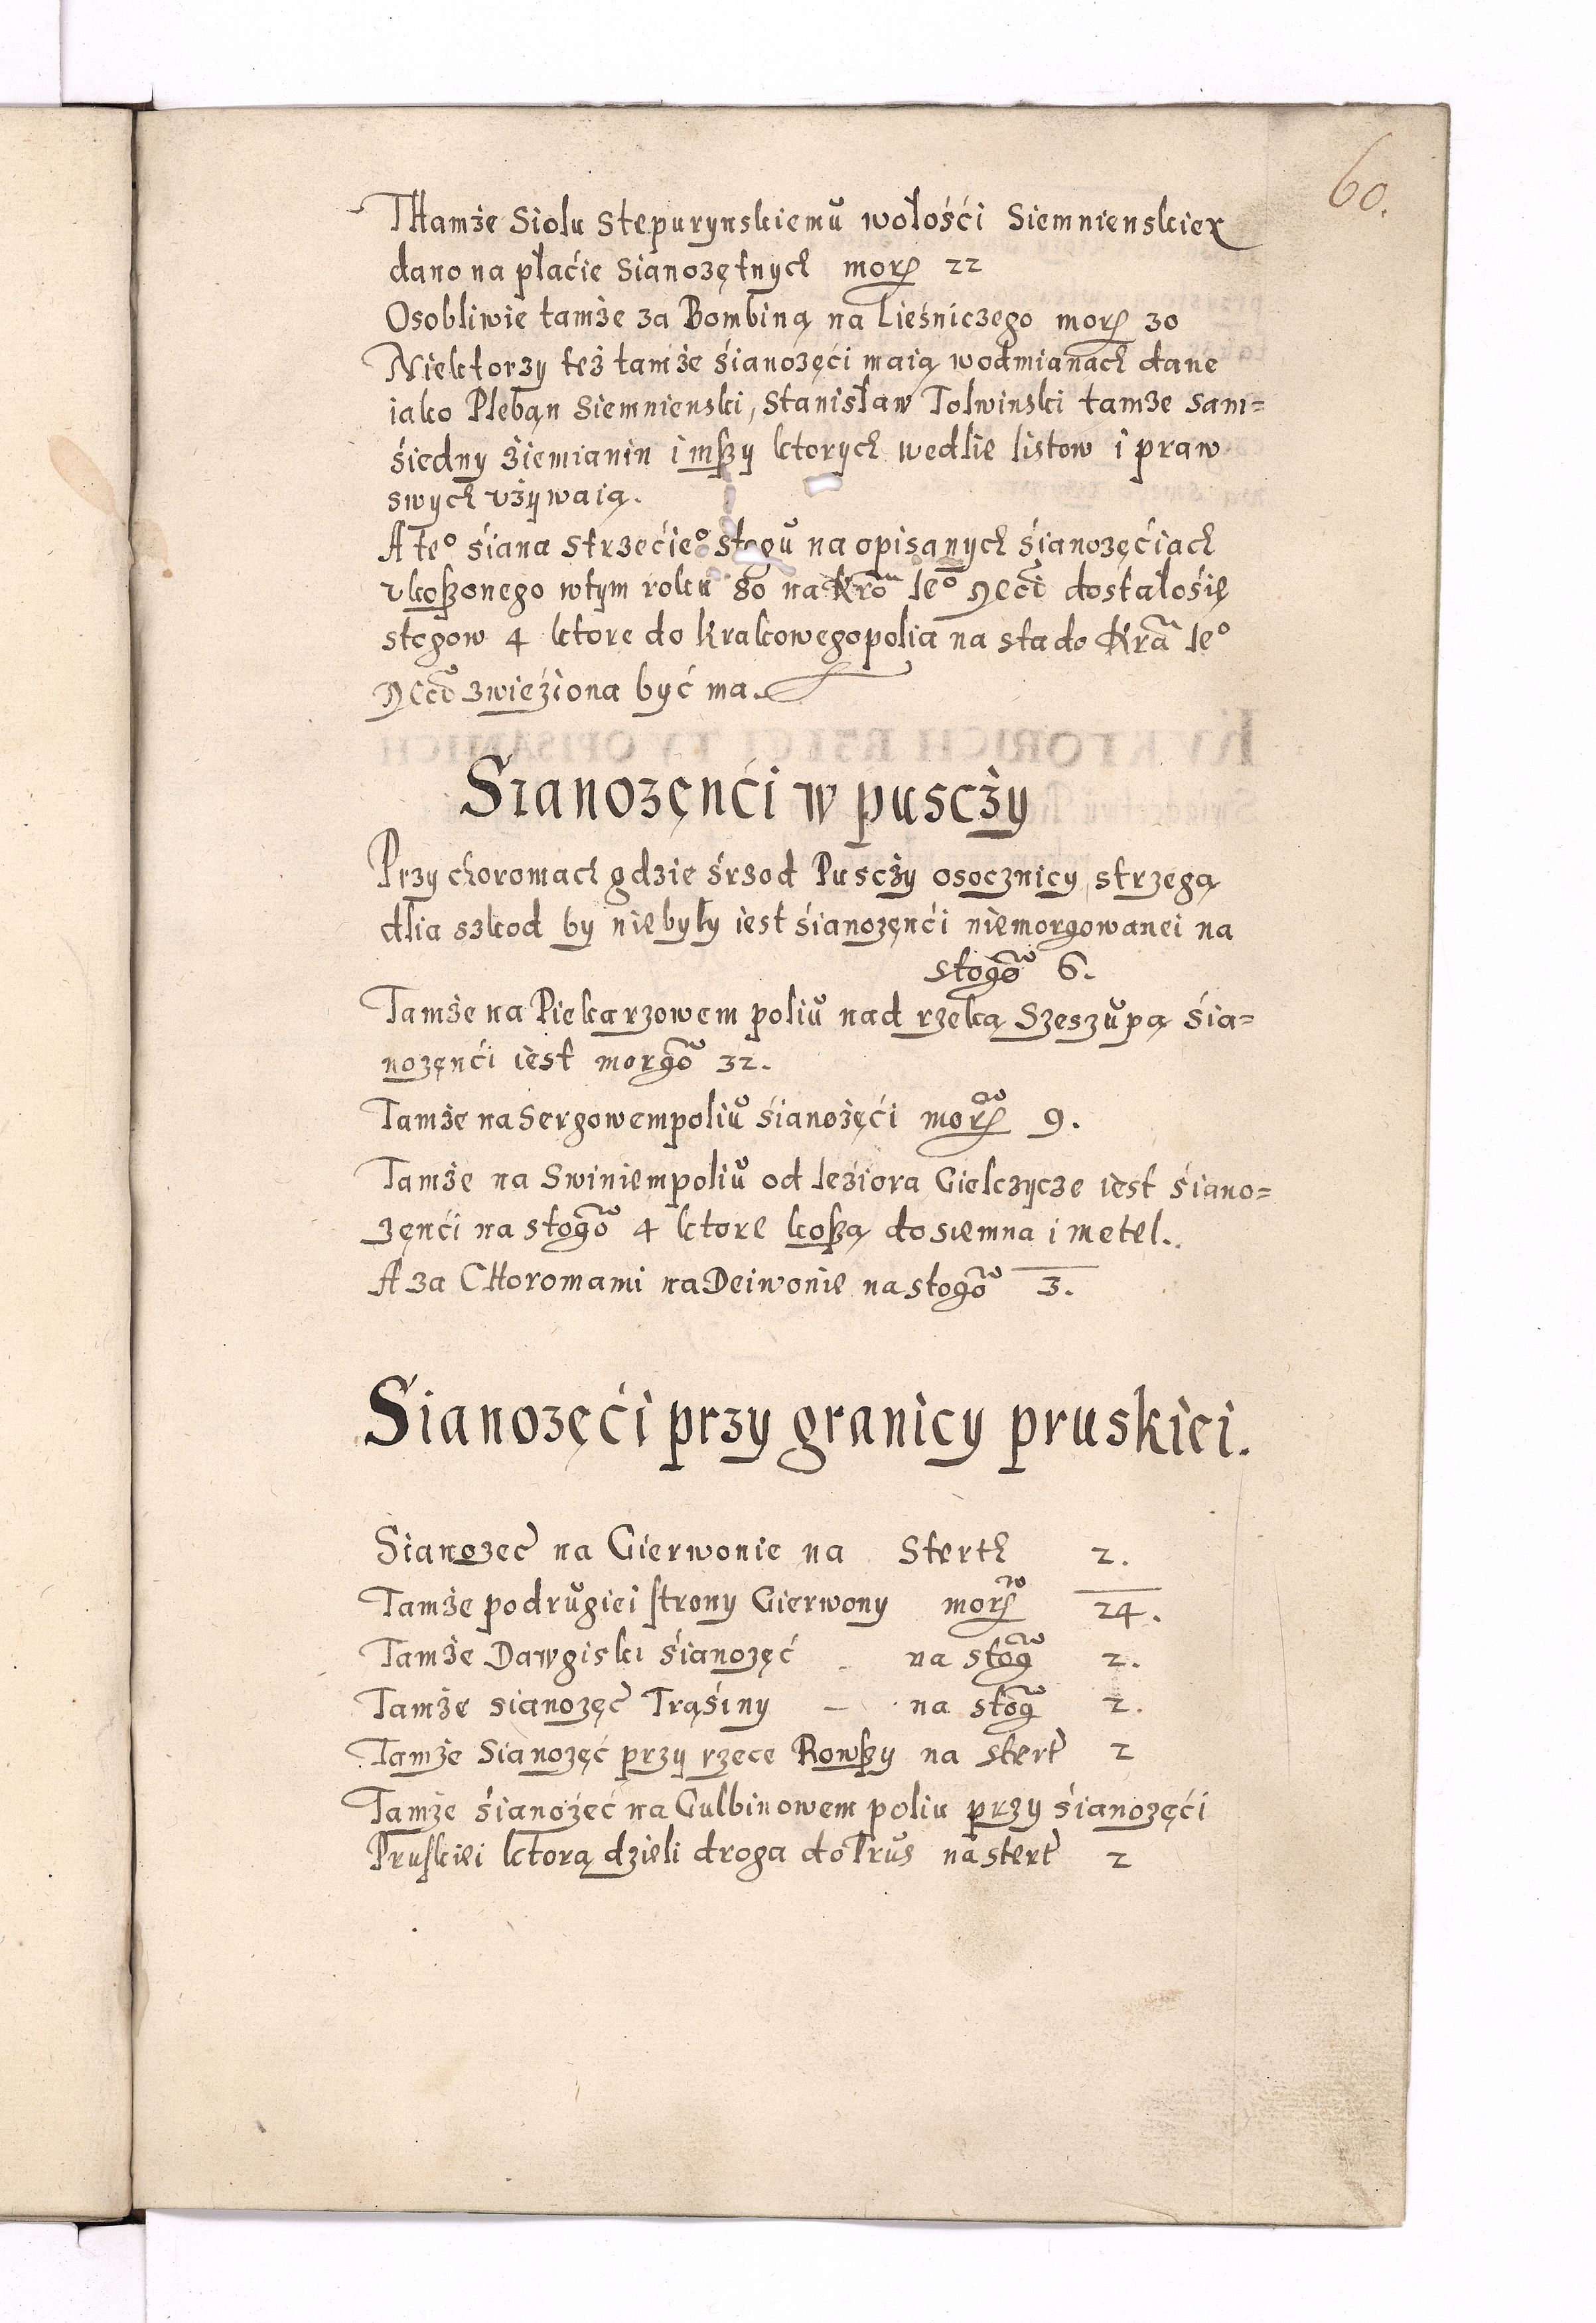 60.
THamże Siolu Stepurynskiemu wołośći Siemnienskiey
dano na płaćie Sianozętnych morg 22
Osobliwie tamże za Bombiną na Lieśniczego morg 30
Niektorzy też tamże śianożęći maią wodmianach dane
iako Pleban Siemnienski, Stanisław Tolwinski tamże sam=
śiedny źiemianin i inszy ktorych wedlie listow i praw
swych vżywaią.
A te° śiana strzećie° stogu na opisanych śianozęćiach
vkoszonego wtym roku 80 na Kro Je° Mći dostałośię
stogow 4 ktore do krakowegopolia na stado Kra Je°
Mći zwieźiona być ma.
Sianozęnći w pusczży
Przy choromach gdzie śrzod Pusczży osocznicy strzegą
dlia szkod by niebyły iest śianozęnći niemorgowanei na
stogow 6.
Tamże na Piekarzowem poliu nad rzeką Szeszupą śia=
nozęnći iest morgow 32.
Tamże na Sergowempoliu śianożęći morgow 9.
Tamże na Swiniempoliu od Jeziora Gielczycze iest śiano=
zęnći na stogow 4 ktore koszą do siemna i metel.
A za CHoromami na Deiwonie na stogow 3.
Sianozęći przy granicy pruskiei.
Sianozec na Gierwonie na Sterth 2.
Tamże podrugiei strony Gierwony morgow 24.
Tamże Dawgiski śianozęć – na stogow 2.
Tamże sianozęć Trąśiny – na stogow 2.
Tamże Sianozęć przy rzece Rowszy na stert 2
Tamże śianożeć na Gulbinowem poliu przy śianozęći
Pruskiei ktorą dzieli droga do Prus na stert 2